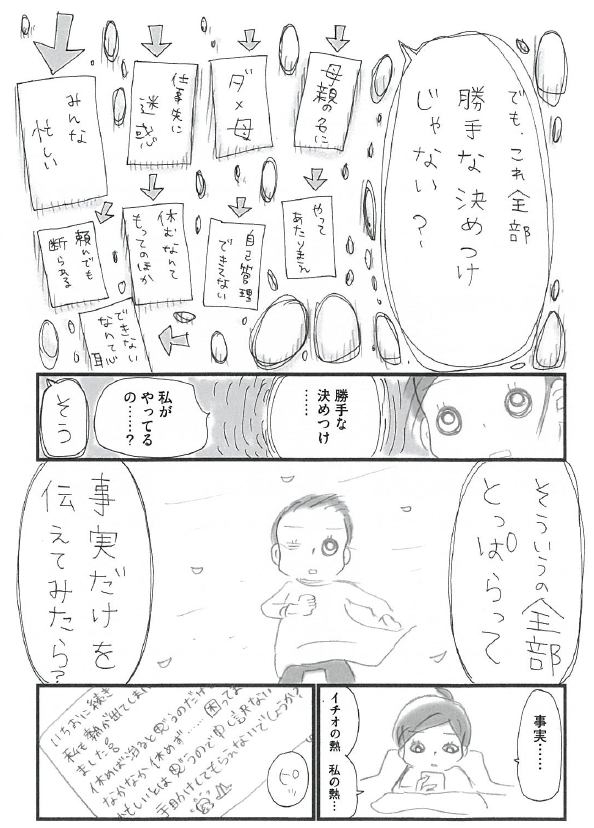 でも、これ全部
勝手な決めつけ
じゃない？
母親の名に
ダメ母
仕事先に
迷惑
みんな
忙しい
やって
あたりまえ
自己管理
できてない
休むなんて
もってのほか
頼んでも
断られる
できない
なんて恥
勝手な
決めつけ
……
私が
やってる
の……？
そう
そういうの全部
とっぱらって
事実だけを
伝えてみたら？
事実……
イチオの熱　私の熱…
ピロッ
いちおに続き
私も熱が出てしまい
ました
休めば治ると思うのだけど
なかなか休めず……困ってま
忙しいとは思うので申し訳ない
手助けしてもらえないでしょうか？